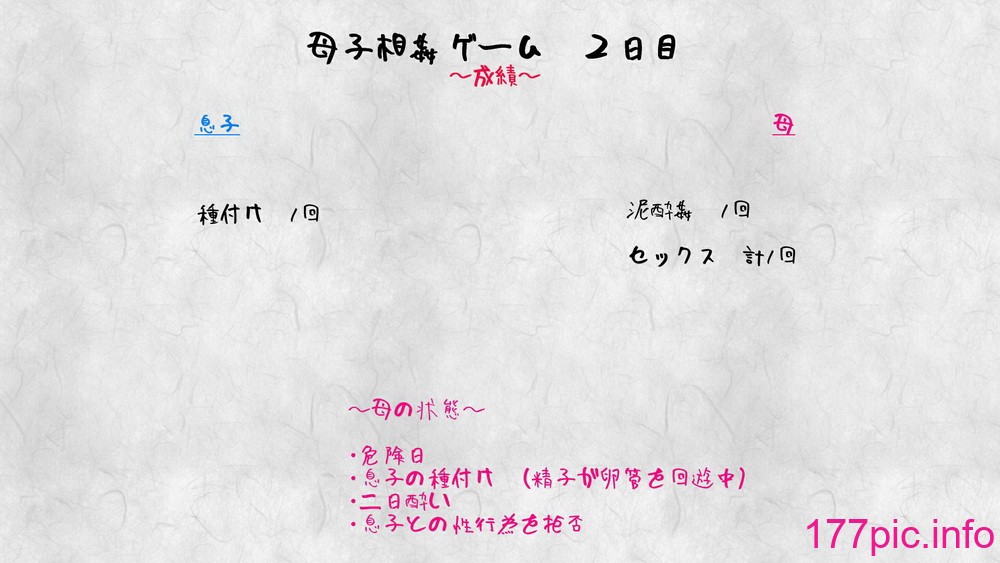 母子相姦ゲーム　2日目
～成績～
息子
母
種付け　1回
泥酔姦　1回
セックス　計1回
～母の状態～
・危険日
・息子の種付け　(精子が卵管を回遊中)
・二日酔い
・息子との性行為を拒否
177pic.info